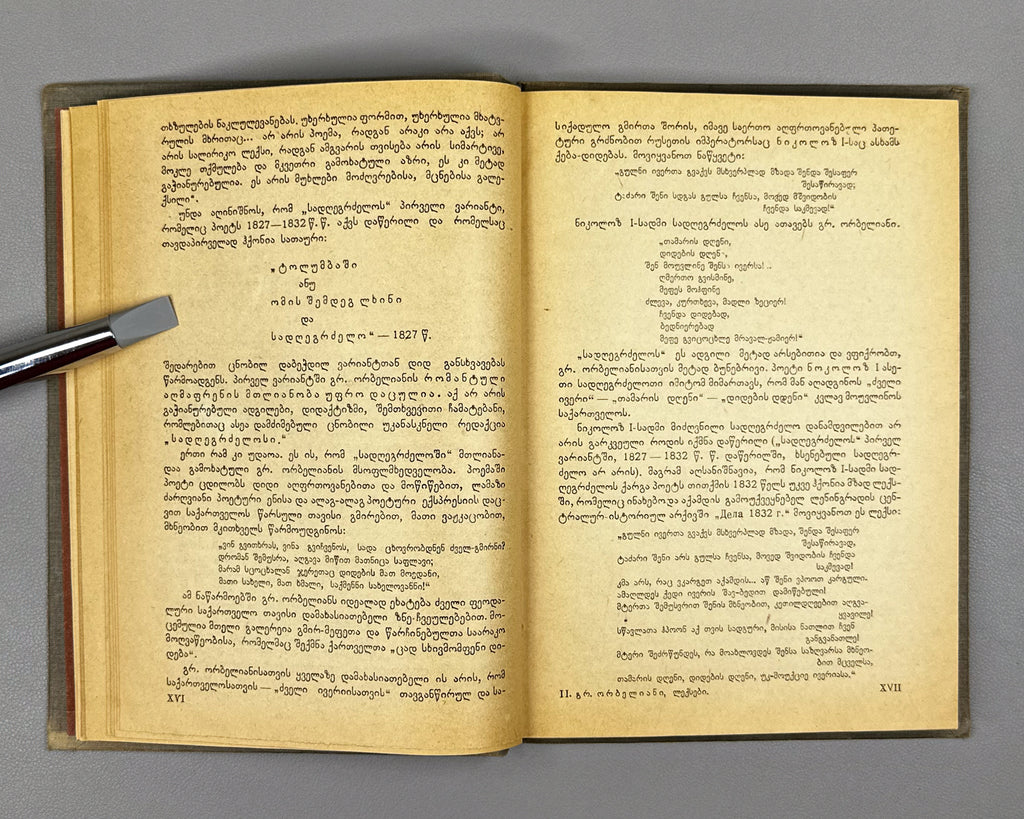 თხზულების ნაკლულევანებას. უხერხულია ფორმით, უხერხულია მხატვ-
რულის მხრითაც... არ არის პოემა, რადგან არაკი არა აქვს; არ
არის სალირიკო ლექსი, რადგან ამგვარის თვისება არის სიმარტივე,
მოკლე თქმულება და მკვეთრი გამოხატული აზრი, ეს კი მეტად
გაჭიანურებულია. ეს არის მუხლები მოძღვრებისა, მცნებისა გალე-
ქსილი“.
უნდა აღინიშნოს, რომ „სადღეგრძელოს“ პირველი ვარიანტი,
რომელიც პოეტს 1827—1832 წ. წ. აქვს დაწერილი და რომელსაც
თავდაპირველად ჰქონია სათაური:
„ტოლუმბაში
ანუ
ომის შემდეგ ლხინი
და
სადღეგრძელო“ — 1827 წ.
შედარებით ცნობილ დაბეჭდილ ვარიანტთან დიდ განსხვავებას
წარმოადგენს. პირველ ვარიანტში გრ. ორბელიანის რომანტული
აღმაფრენის მთლიანობა უფრო დაცულია. აქ არ არის
გაჭიანურებული ადგილები, დიდაქტიზმი, შემთხვევითი ჩამატებანი,
რომლებითაც ასეა დამძიმებული ცნობილი უკანასკნელი რედაქცია
„სადღეგრძელოსი.“
ერთი რამ კი უდაოა. ეს ის, რომ „სადღეგრძელოში“ მთლიანა-
დაა გამოხატული გრ. ორბელიანის მსოფლმხედველობა. პოემაში
პოეტი ცდილობს დიდი აღფრთოვანებითა და მოწიწებით, ლამაზი
ძარღვიანი პოეტური ენისა და ალაგ-ალაგ პოეტური ექსპრესიის დაც-
ვით საქართველოს წარსული თავისი გმირებით, მათი ვაჟკაცობით,
მხნეობით მკითხველს წარმოუდგინოს:
„ვინ გვითხრას, ვინა გვიჩვენოს, სადა ცხოვრობდნენ ძველ-გმირნი?
დრომან შემუსრა, აღგავა მიწით მათნიცა საფლავი;
მარამ სცოცხალან ჯერეთაც დიდების მათ მოედანი,
მათი სახელი, მათ ხმალი, საქმენნი სახელოვანნი!“
ამ ნაწარმოებში გრ. ორბელიანს იდეალად ეხატება ძველი ფეოდა-
ლური საქართველო თავისი დამახასიათებელი ზნე-ჩვეულებებით. მო-
ცემულია მთელი გალერეია გმირ-მეფეთა და წარჩინებულთა საარაკო
მოღვაწეობისა, რომელმაც შექმნა ქართველთა „ცად სხივმომფენი დი-
დება“.
გრ. ორბელიანისათვის ყველაზე დამახასიათებელი ის არის, რომ
საქართველოსათვის — „ძველი ივერიისათვის“ თავგანწირულ და სა-
XVI
სიქადულო გმირთა შორის, იმავე საერთო აღფრთოვანებული პათე-
ტიური გრძნობით რუსეთის იმპერატორსაც ნიკოლოზ I-საც ასხამს
ქება-დიდებას. მოვიყვანოთ ნაწყვეტი:
„გულნი ივერთა გვაქვს მსხვერპლად მზადა შენდა შესაფერ
შესაწირავად;
ტაძარი შენი სდგას გულსა ჩვენსა, მოვედ მშვიდობის
ჩვენდა საკმევად!“
ნიკოლოზ I-სადმი სადღეგრძელოს ასე ათავებს გრ. ორბელიანი.
„თამარის დღენი,
დიდების დღენი,
შენ მოუვლინე შენსა ივერსა!..
ღმერთო გვისმინე,
მეფეს მოჰფინე
ძლევა, კურთხევა, მადლი ზეციერ!
ჩვენდა დიდებად,
ბედნიერებად
მეფე გვიცოცხლე მრავალ-ჟამიერ!“
„სადღეგრძელოს“ ეს ადგილი მეტად არსებითია და ვფიქრობთ,
გრ. ორბელიანისათვის მეტად ბუნებრივი. პოეტი ნიკოლოზ I ასე-
თი სადღეგრძელოთი იმიტომ მიმართავს, რომ მან აღადგინოს „ძველი
ივერი“ — „თამარის დღენი“ — „დიდების დღენი“ კვლავ მოუვლინოს
საქართველოს.
ნიკოლოზ I-სადმი მიძღვნილი სადღეგრძელო დანამდვილებით არ
არის გარკვეული როდის იქმნა დაწერილი („სადღეგრძელოს“ პირველ
ვარიანტში, 1827 — 1832 წ. წ. დაწერილში, ხსენებული სადღეგრ-
ძელო არ არის). მაგრამ აღსანიშნავია, რომ ნიკოლოზ I-სადმი სად-
ღეგრძელოს ქარგა პოეტს თითქმის 1832 წელს უკვე ჰქონია მზად ლექს-
ში, რომელიც ინახება და აქამდის გამოუქვეყნებელ ლენინგრადის ცენ-
ტრალურ-ისტორიულ არქივში „Дела 1832 г.“ მოვიყვანოთ ეს ლექსი:
„გულნი ივერთა გვაქვს მსხვერპლად მზადა, შენდა შესაფერ
შესწირავად,
ტაძარი შენი არს გულსა ჩვენსა, მოვედ შვიდობის ჩვენდა
საკმევად!
კმა არს, რაც ვკარგეთ აქამდის... აწ შენი ვპოოთ კარგული.
ამაღლდეს ქედი ივერის შავ-ბედით დამიწებული!
მტერთა შემუსვრით შენის მხნეობით, კეთილდღეებით აღგვა-
ყვავილე!
სწავლათა ჰპოონ აქ თვის სადგური, მისისა ნათლით ჩვენ
განგვანათლე!
მტერი შეძრწუნდეს, რა მოახლოვდეს შენსა საზღვარსა მხნეო-
ბით მცველსა,
თამარის დღენი, დიდების დღენი, უკ-მოუქციე ივერიასა.“
II. გრ. ორბელიანი, ლექსები.
XVII